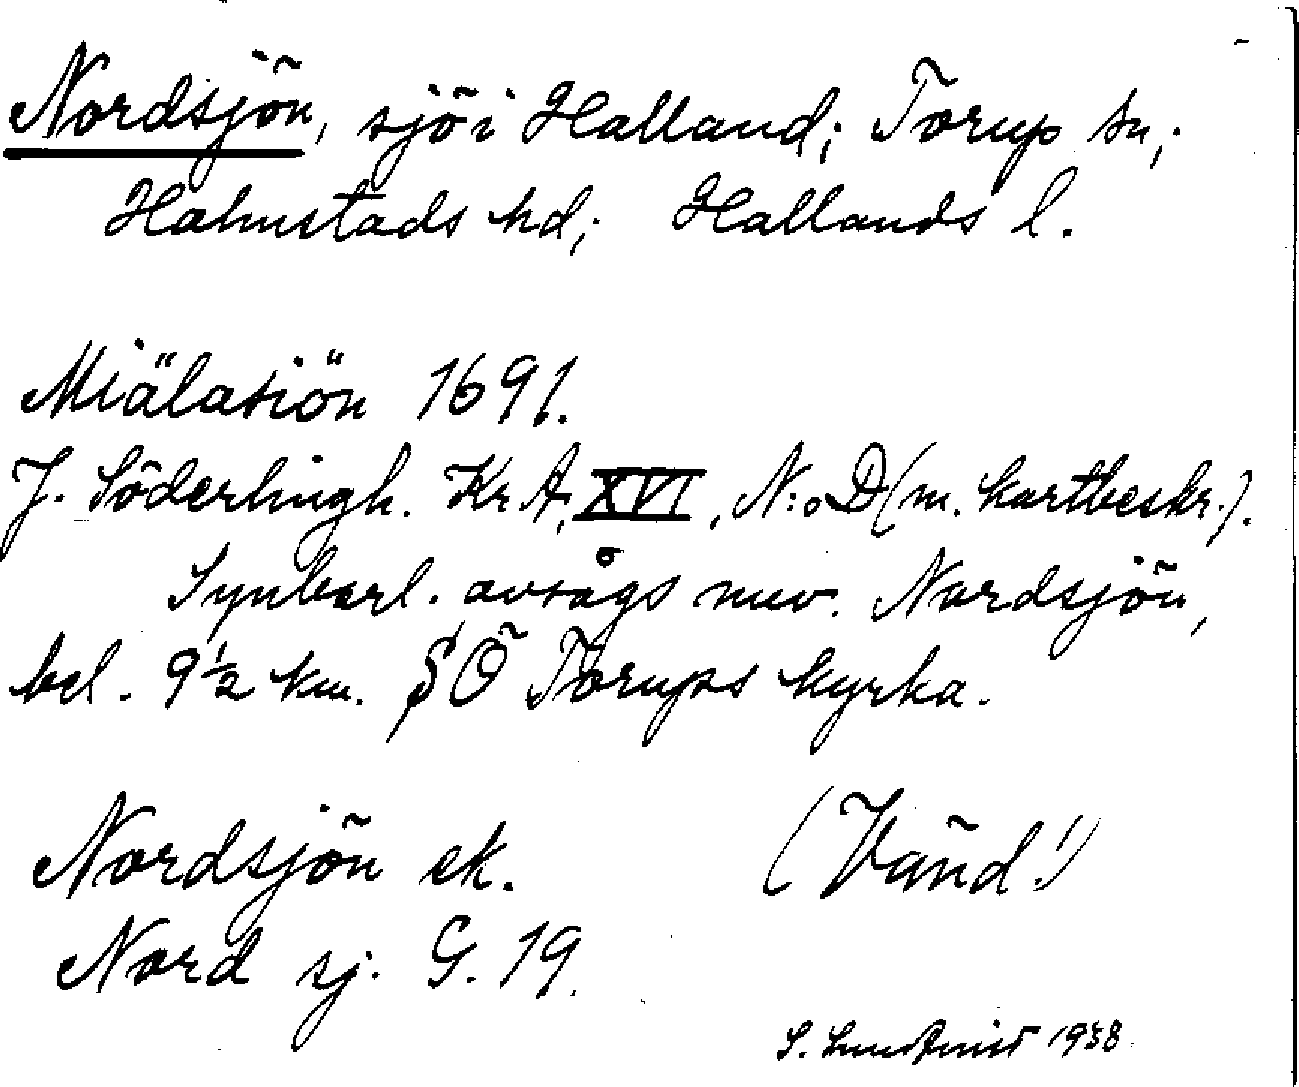 Nordsjön, sjö i Halland; Torup sn,;
Halmstads hd; Hallands l.
Miälasiön 1691.
J. Söderlingh. Kr. A. XVI, N:o D (m. kartbeskr.).
Synbarl. avsågs nuv. Nordsjön,
bel. 9½ km. SÖ Torups kyrka.
Nordsjön ek. (Vänd!)
Nord sj. G. 19.
S. Lundqvist 1938